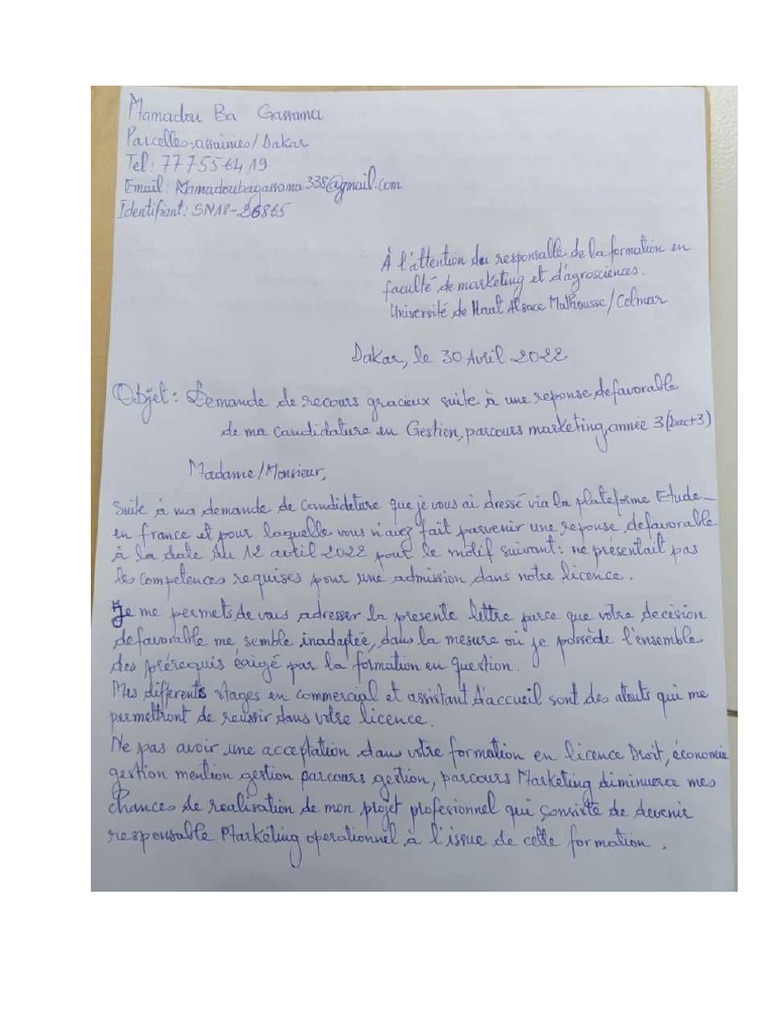 Mamadou Ba Gassama
Parcelles-assainies/Dakar
Tel: 777556419
Email: Mamadoubagassama338@gmail.com
Identifiant: SN18-26865
À l'attention du responsable de la formation en
faculté de marketing et d'agrosciences.
Université de Haut Alsace Mulhousse/Colmar
Dakar, le 30 Avril 2022
Objet: Demande de recours gracieux suite à une reponse defavorable
de ma candidature en Gestion, parcours marketing, année 3 (bac+3)
Madame/Monsieur,
Suite à ma demande de candidature que je vous ai dressé via la plateforme Etude-
en france et pour laquelle vous m'avez fait parvenir une reponse defavorable
à la date du 12 avril 2022 pour le motif suivant: ne présentait pas
les competences requises pour une admission dans notre licence.
Je me permets de vous adresser la presente lettre parce que votre decision
defavorable me semble inadaptée, dans la mesure où je possède l'ensemble
des prérequis éxigé par la formation en question.
Mes differents stages en commercial et assistant d'accueil sont des atouts qui me
permettront de reussir dans votre licence.
Ne pas avoir une acceptation dans votre formation en licence Droit, économie
gestion mention gestion parcours gestion, parcours Marketing diminuera mes
chances de realisation de mon projet profesionnel qui consiste de devenir
responsable Marketing operationnel à l'issue de cette formation.